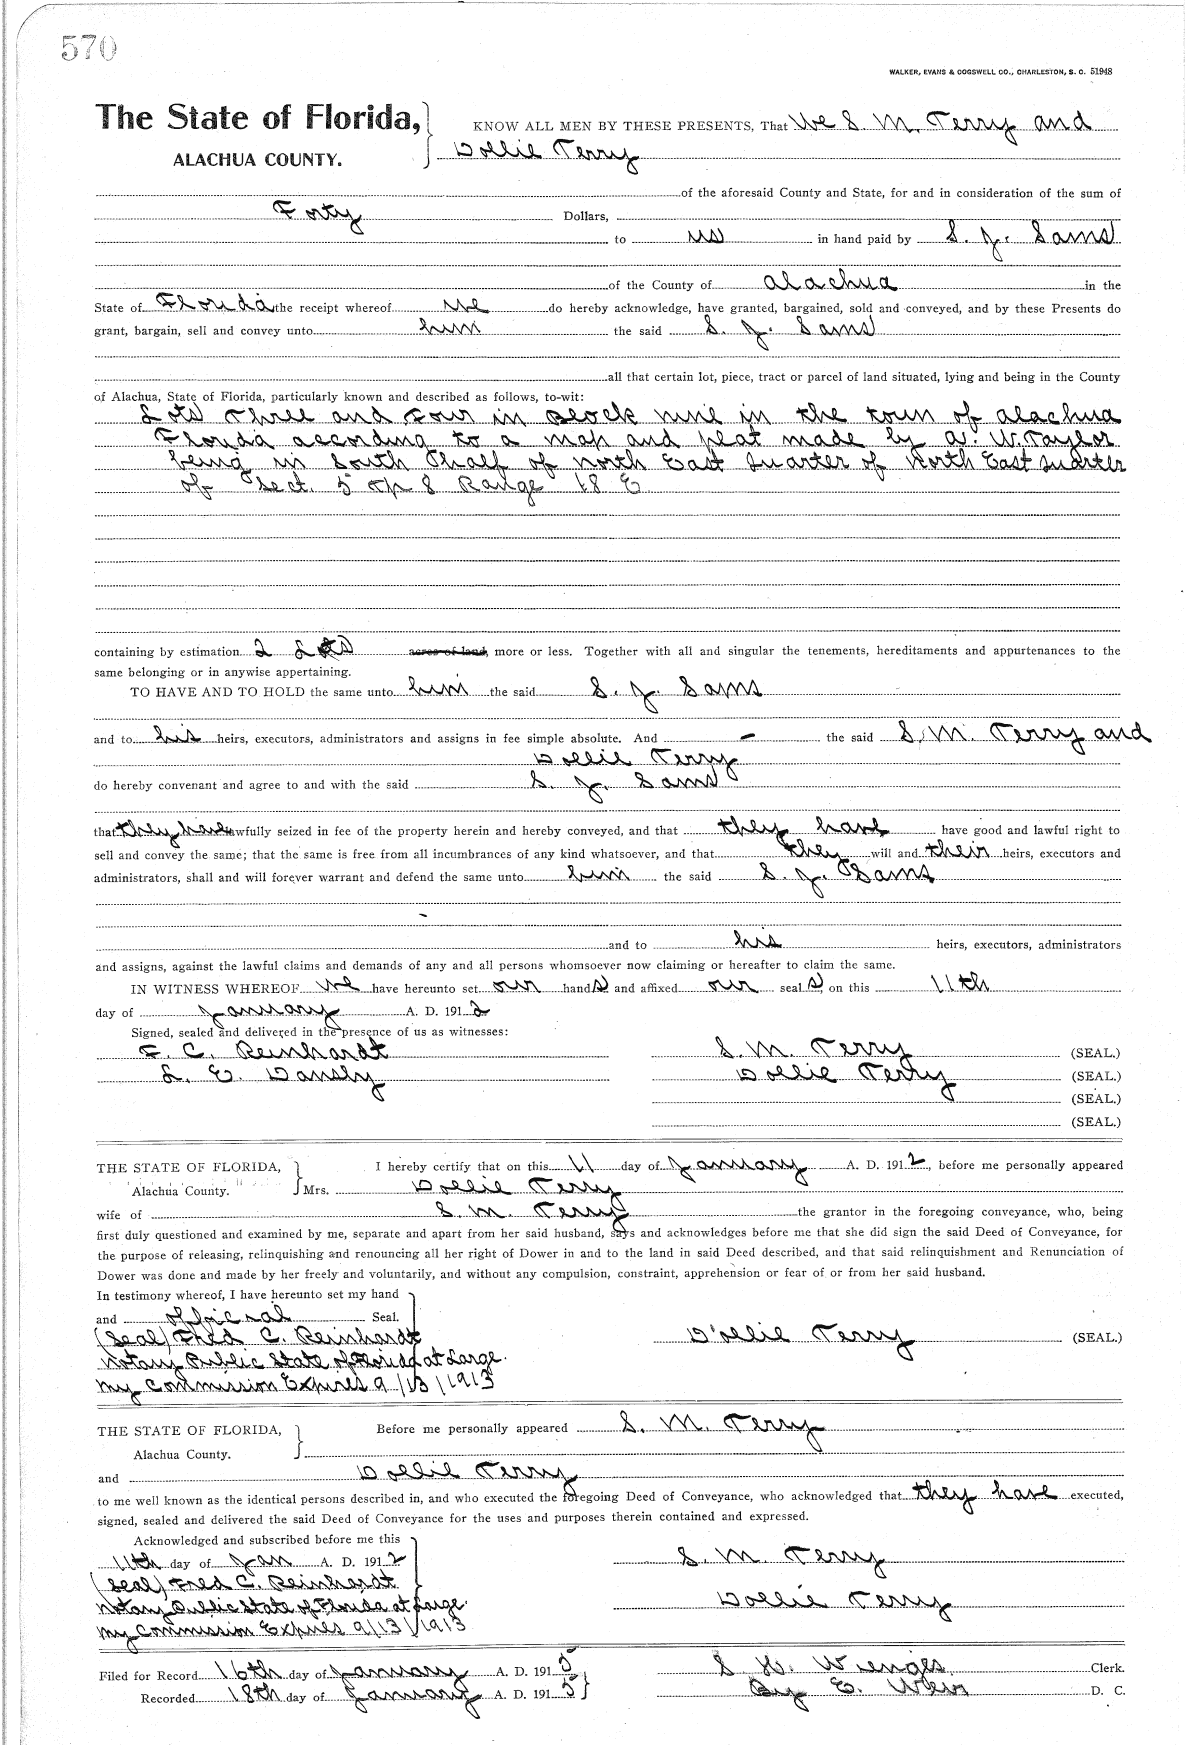 570
WALKER, EVANS & COGSWELL CO., CHARLESTON, S. C. 51948
The State of Florida, KNOW ALL MEN BY THESE PRESENTS, That We S. M. Terry and
ALACHUA COUNTY. Dollie Terry
of the aforesaid County and State, for and in consideration of the sum of
Forty Dollars,
to us in hand paid by S. J. Sams
of the County of Alachua in the
State of Florida the receipt whereof we do hereby acknowledge, have granted, bargained, sold and conveyed, and by these Presents do
grant, bargain, sell and convey unto him the said S. J. Sams
all that certain lot, piece, tract or parcel of land situated, lying and being in the County
of Alachua, State of Florida, particularly known and described as follows, to-wit:
Lots Three and Four in Block nine in the town of Alachua
Florida according to a map and plat made by A. W. Taylor
being in South half of North East Quarter of North East Quarter
of Sect. 5 Tp 8 Range 18 E
containing by estimation 2 Lots acres of land, more or less. Together with all and singular the tenements, hereditaments and appurtenances to the
same belonging or in anywise appertaining.
TO HAVE AND TO HOLD the same unto him the said S. J. Sams
and to his heirs, executors, administrators and assigns in fee simple absolute. And - the said S. M. Terry and
Dollie Terry
do hereby convenant and agree to and with the said S. J. Sams
that they have lawfully seized in fee of the property herein and hereby conveyed, and that they have have good and lawful right to
sell and convey the same; that the same is free from all incumbrances of any kind whatsoever, and that they will and their heirs, executors and
administrators, shall and will forever warrant and defend the same unto him the said S. J. Sams
and to his heirs, executors, administrators
and assigns, against the lawful claims and demands of any and all persons whomsoever now claiming or hereafter to claim the same.
IN WITNESS WHEREOF we have hereunto set our hand s and affixed our seal s on this 11th
day of January A. D. 1912
Signed, sealed and delivered in the presence of us as witnesses:
F. C. Reinhardt S. M. Terry (SEAL.)
L. E. Dansby Dollie Terry (SEAL.)
(SEAL.)
(SEAL.)
THE STATE OF FLORIDA, I hereby certify that on this 11 day of January A. D. 1912, before me personally appeared
Alachua County. Mrs. Dollie Terry
wife of S. M. Terry the grantor in the foregoing conveyance, who, being
first duly questioned and examined by me, separate and apart from her said husband, says and acknowledges before me that she did sign the said Deed of Conveyance, for
the purpose of releasing, relinquishing and renouncing all her right of Dower in and to the land in said Deed described, and that said relinquishment and Renunciation of
Dower was done and made by her freely and voluntarily, and without any compulsion, constraint, apprehension or fear of or from her said husband.
In testimony whereof, I have hereunto set my hand
and official Seal.
(Seal) Fred C. Reinhardt Dollie Terry (SEAL.)
Notary Public State of Florida at Large.
My Commission Expires 9/13/1913
THE STATE OF FLORIDA, Before me personally appeared S. M. Terry
Alachua County.
and Dollie Terry
to me well known as the identical persons described in, and who executed the foregoing Deed of Conveyance, who acknowledged that they have executed,
signed, sealed and delivered the said Deed of Conveyance for the uses and purposes therein contained and expressed.
Acknowledged and subscribed before me this
11th day of Jan A. D. 1912 S. M. Terry
(Seal) Fred C. Reinhardt
Notary Public State of Florida at Large. Dollie Terry
My Commission Expires 9/13/1913
Filed for Record 16th day of January A. D. 1915 S H. Wienges Clerk.
Recorded 18th day of January A. D. 1915 By E. Weir D. C.